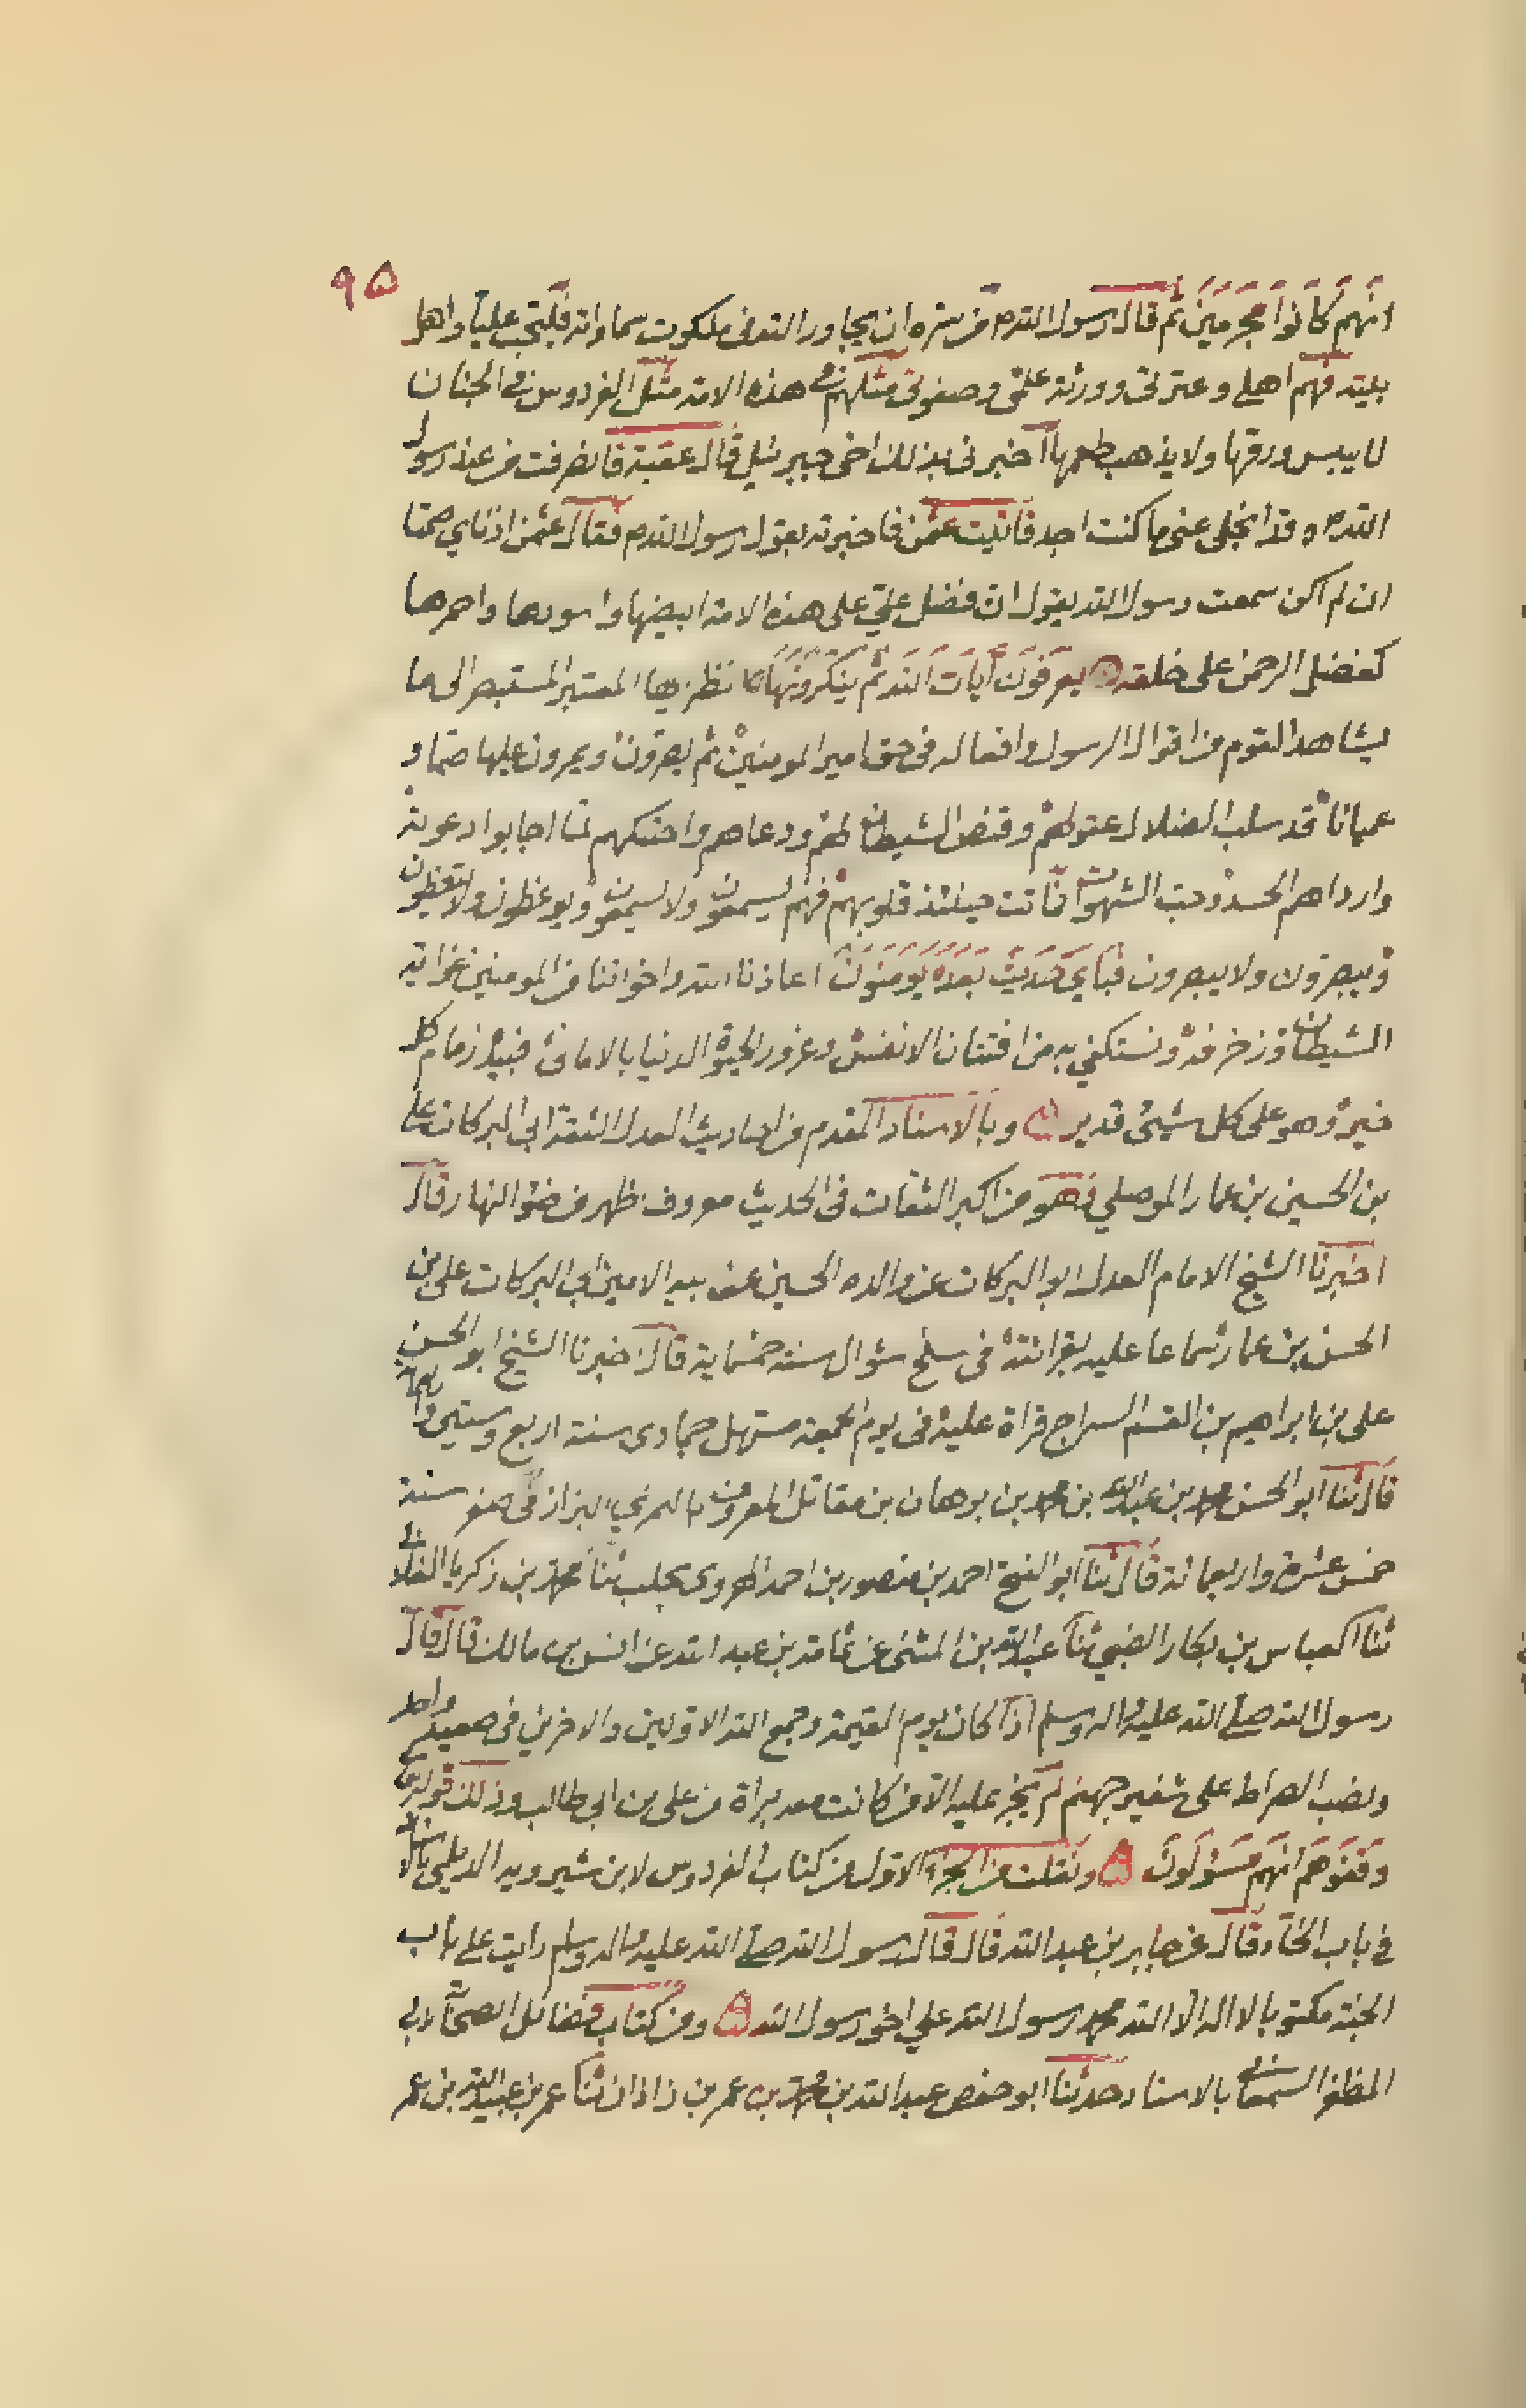 ٩٥
انهم كانوا مجرمين ثم قال رسول الله ص من سره ان يجاور الله فى ملكوت سماواته فليحب عليا واهل
بيته فهم اهلي وعترتى وورثة علمى وصفوتى مثلهم فى هذه الامة مثل الفردوس فى الجنان
لا ييبس ورقها ولا يذهب طعمها اخبرنى بذلك اخى جبرئيل قال عقبة فانصرفت من عند رسول
الله ص وقد انجلى عنى ما كنت اجد فاتيت عثمن فاخبرته بقول رسول الله ص فقال عثمن اذناي صمتا
ان لم اكن سمعت رسول الله يقول ان فضل علي على هذه الامة ابيضها واسودها واحمرها
كفضل الرحمن على خلقه يعرفون آيات الله ثم ينكرونها نظر بها المعتبر المستبصر الى ما
يشاهد القوم من اقوال الرسول وافعاله فى حق امير المومنين ثم يصرفون ويمرون عليها صما و
عميانا قد سلب الضلال عقولهم وقنص الشيطان لهم ودعاهم واحتنكهم لما اجابوا دعوته
وارداهم الحسد وحب الشهوات فماتت حينئذ قلوبهم فهم يسمعون ولا يسمعون ويوعظون ولا يتعظون
ويبصرون ولا يبصرون فبأي حديث بعده يؤمنون اعاذنا الله واخواننا من المومنين من غراية
الشيطان وزخرفه ونستكفي به من افتتان الانفس وغرور الحيوة الدنيا بالامانى فبيده زمام كل
خير وهو على كل شيئ قدير وبالاسناد المقدم من احاديث العدل الثقة ابى البركات على
بن الحسين بن عمار الموصلي فهو من اكبر الثقات فى الحديث معروف ظهر من ضوء النهار قال
اخبرنا الشيخ الامام العدل ابو البركات عن والده الحسين عن الامين ابى البركات على بن
الحسن بن عمار سماعا عليه بقرائته فى سلخ شوال سنة خمسماية قال اخبرنا الشيخ ابو الحسن
على بن ابراهيم بن القسم السراج قراة عليه فى يوم الجمعة مستهل جمادى سنة اربع وستين واربعماية
قال ثنا ابو الحسن محمد بن عبد الله بن محمد بن برهان بن مقاتل المعروف البزاز فى صفر سنة
خمس عشرة واربعمائة قال ثنا ابو الفتح احمد بن منصور بن احمد الهروى بحلب ثنا محمد بن زكريا الغلابى
ثنا العباس بن بكار الضبي ثنا عبد الله بن المثنى عن ثمامة بن عبد الله عن انس بن مالك قال قال
رسول الله صلى الله عليه واله وسلم اذا كان يوم القيمة وجمع الله الاولين والاخرين فى صعيد واحد
ونصب الصراط على شفير جهنم لم يجز عليه الا من كانت معه براة من على بن ابى طالب وذلك قوله تعالى
وقفوهم انهم مسؤلون ونقلت من الجزء الاول من كتاب الفردوس لابن شيرويه الديلمي بالاسناد
فى باب الخاء قال عن جابر بن عبد الله قال قال رسول الله صلى الله عليه واله وسلم رايت على باب
الجنة مكتوبا لا اله الا الله محمد رسول الله علي اخو رسول الله ومن كتاب فضائل الصحابة لابى
المظفر السمعانى بالاسناد حدثنا ابو حفص عبد الله بن محمد بن عمر بن زاذان ثنا عمر بن عبيد الله بن عمر